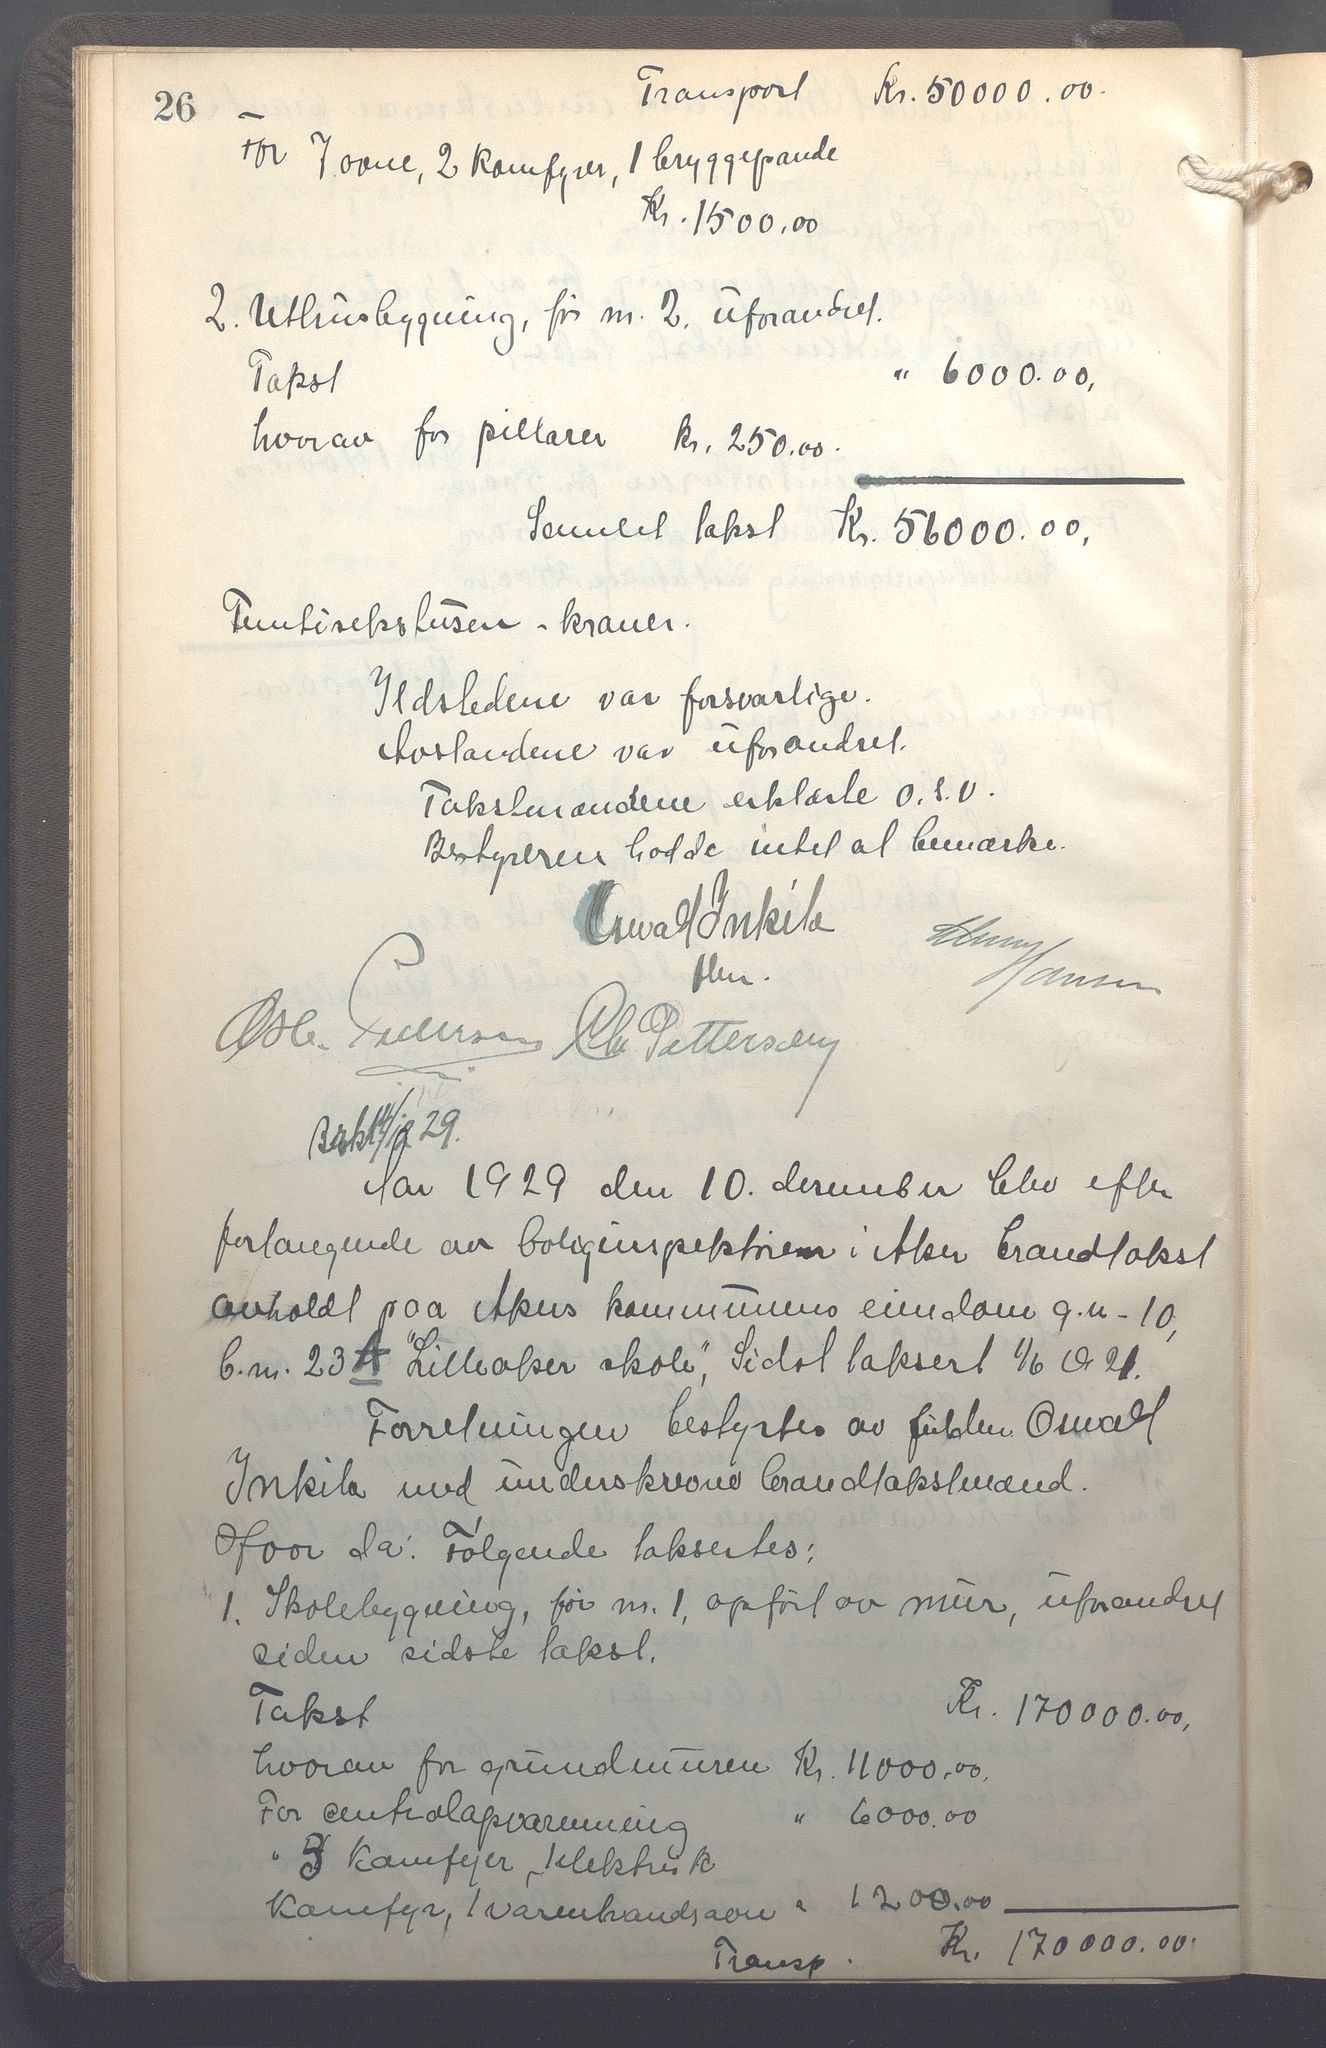 26
Transport Kr. 50000.00.
For 7 ovne, 2 komfyrer, 1 bryggepande
Kr. 1500.00
2. Uthusbygning, før nr. 2. uforandret.
Takst " 6000.00,
hvorav for pillarer kr. 250.00.
Samlet takst Kr. 56000.00,
Femtisekstusen - kroner.
Ildstedene var forsvarlige.
Avstandene var uforandret.
Takstmændene erklærte o.s.v.
Bestyreren hadde intet at bemærke.
Oswald Inkila
Henry Hansen
Osc. Pedersen Chr Pettersen
Besk 14/12 29.
Aar 1929 den 10. desember blev efter
forlangende av boliginspektøren i Aker brandtakst
avholdt paa Akers kommunes eiendom g.n. 10,
b.nr. 23 A "Lilleaker skole", Sidst taksert 1/6 21.
Forretningen bestyrtes av Oswald
Inkila med underskrevne brandtakstmænd.
Hvor da: Følgende taksertes:
1. Skolebygning, før nr. 1, opført av mur, uforandret
siden sidste takst.
Takst Kr. 170000.00,
hvorav for grundmuren Kr. 11000.00.
For centralopvarmning " 6000.00
" 3 komfyr, 1 elektrisk
komfyr, 1 varmtvandsovn " 1200.00
Transp. Kr. 170000.00.